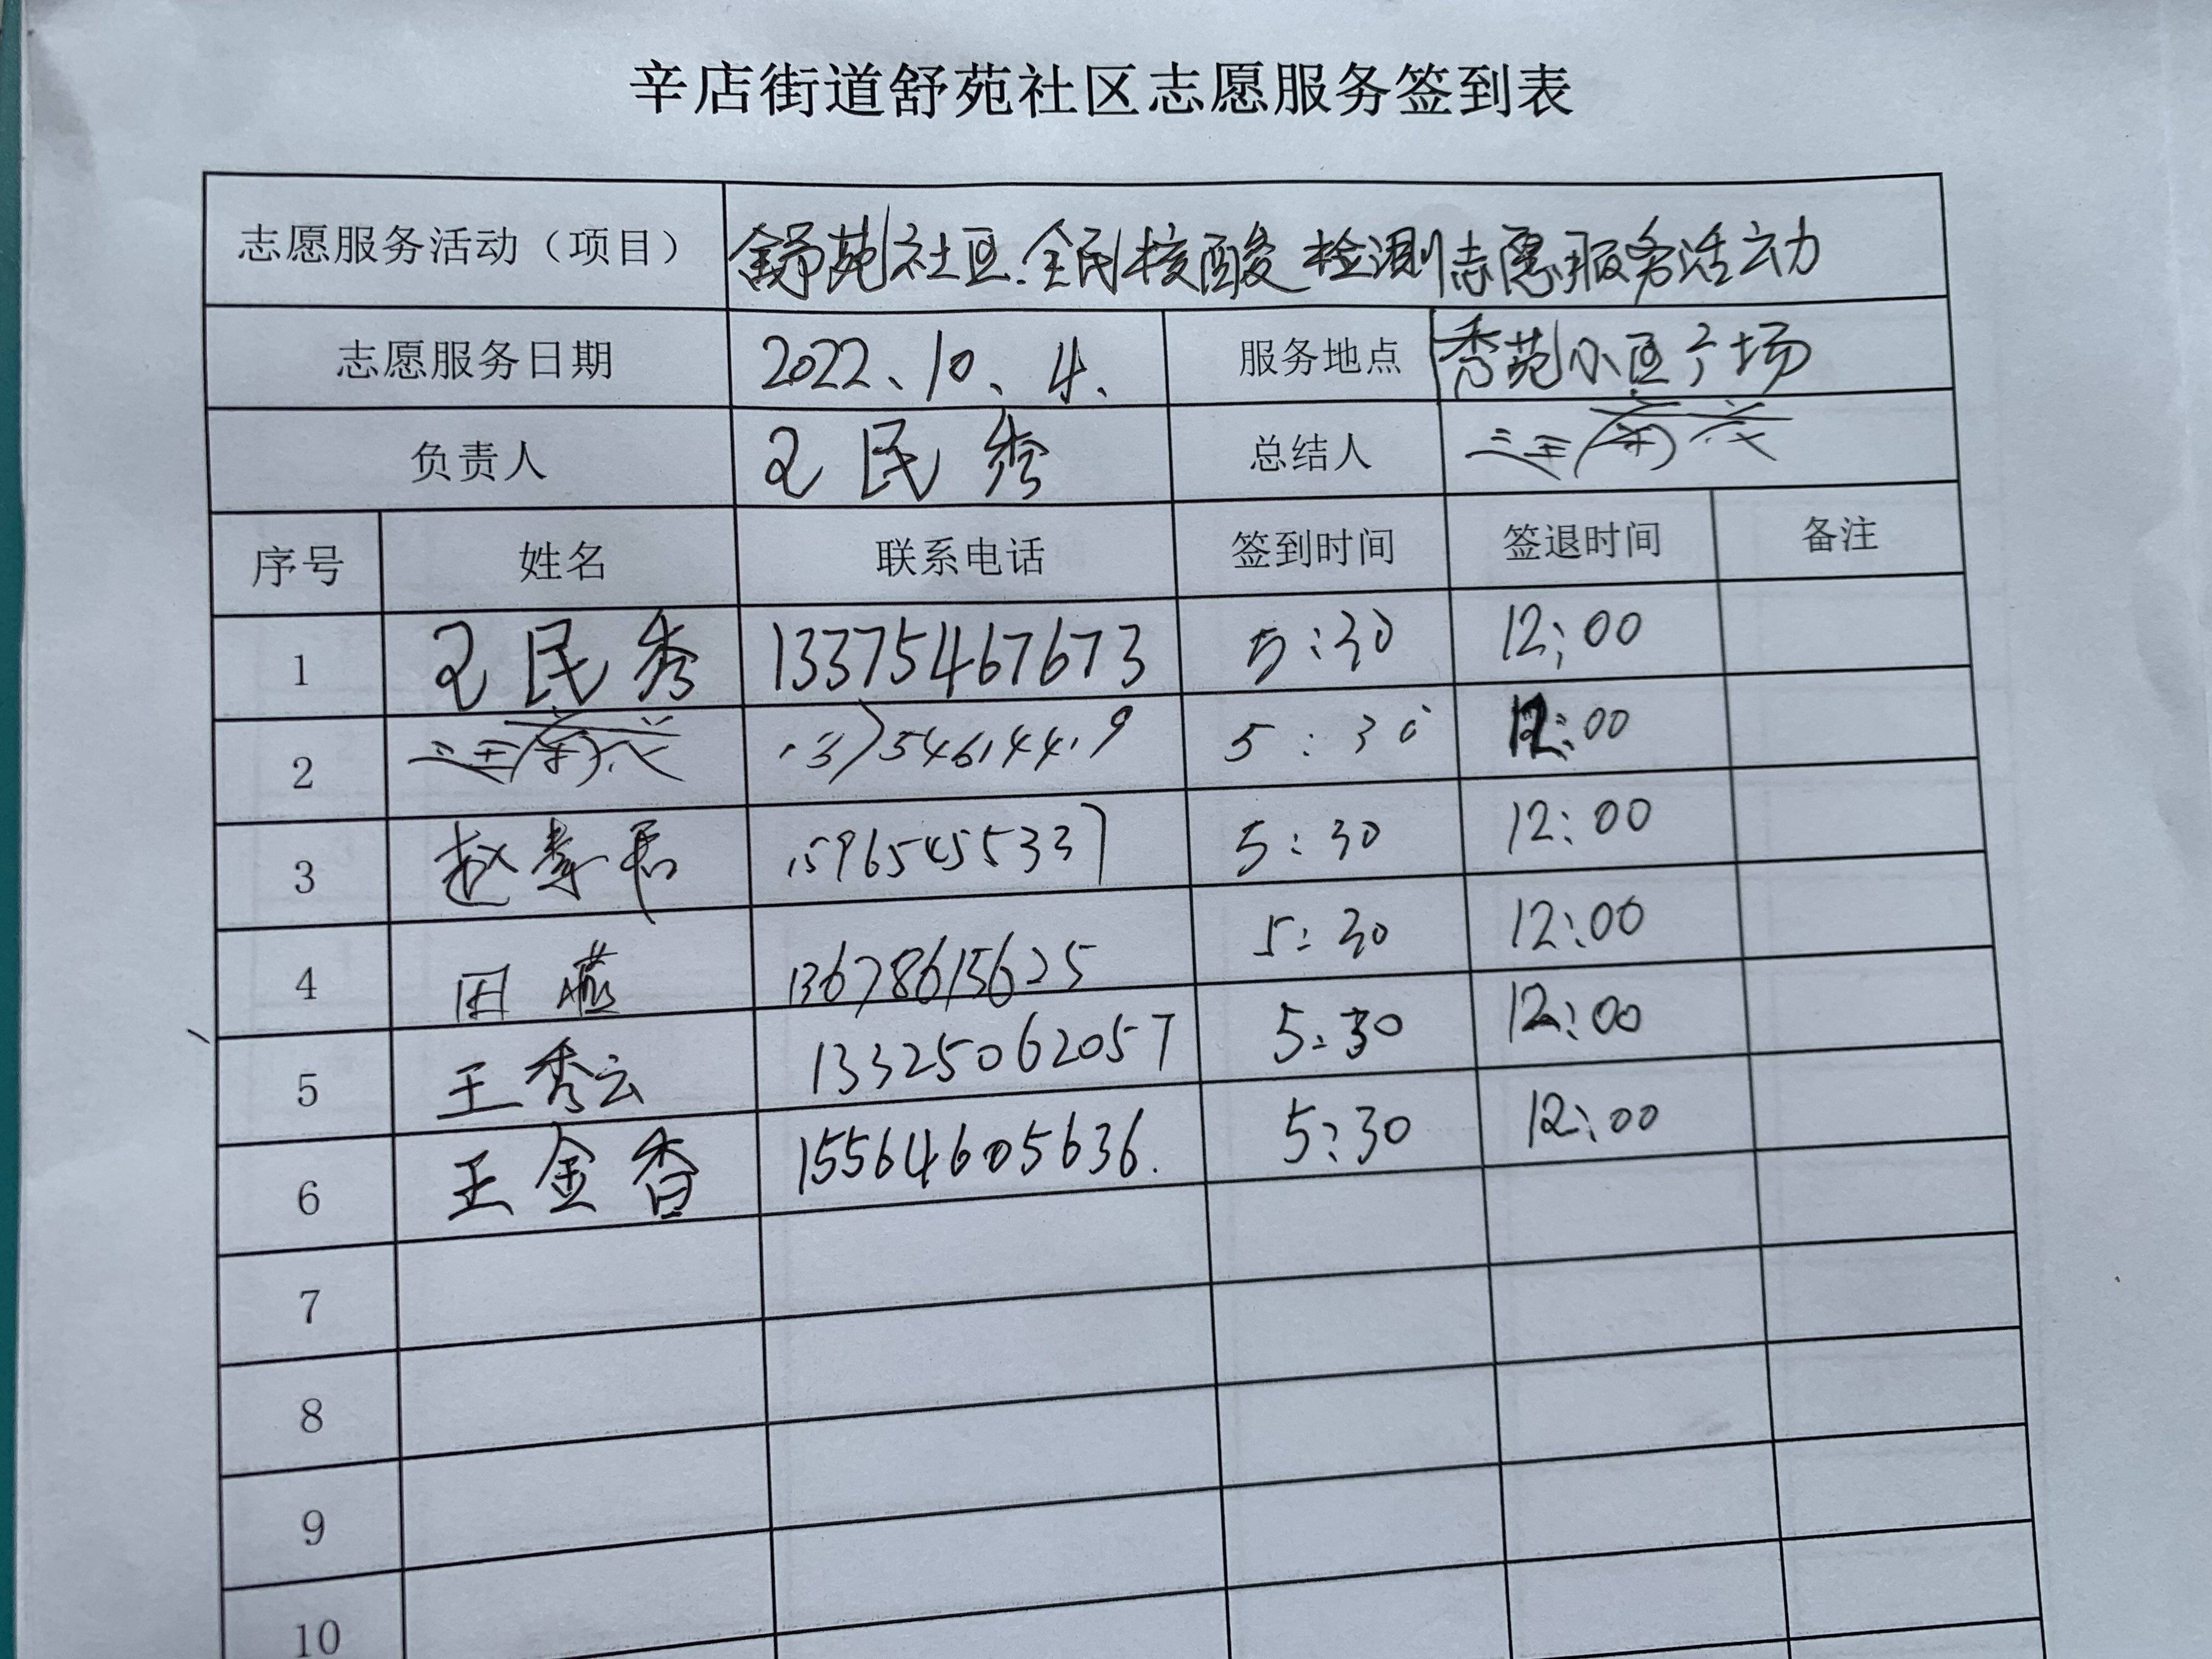 辛店街道舒苑社区志愿服务签到表
志愿服务活动（项目） 舒苑社区.全民核酸检测志愿服务活动
志愿服务日期 2022、10、4、 服务地点 秀苑小区广场
负责人 王民秀 总结人
序号 姓名 联系电话 签到时间 签退时间 备注
1 王民秀 13375467673 5:30 12:00
2 5:30 12:00
3 赵孝君 15965455337 5:30 12:00
4 田 13678615625 5:30 12:00
5 王秀云 13325062057 5:30 12:00
6 王金香 15564605636. 5:30 12:00
7
8
9
10